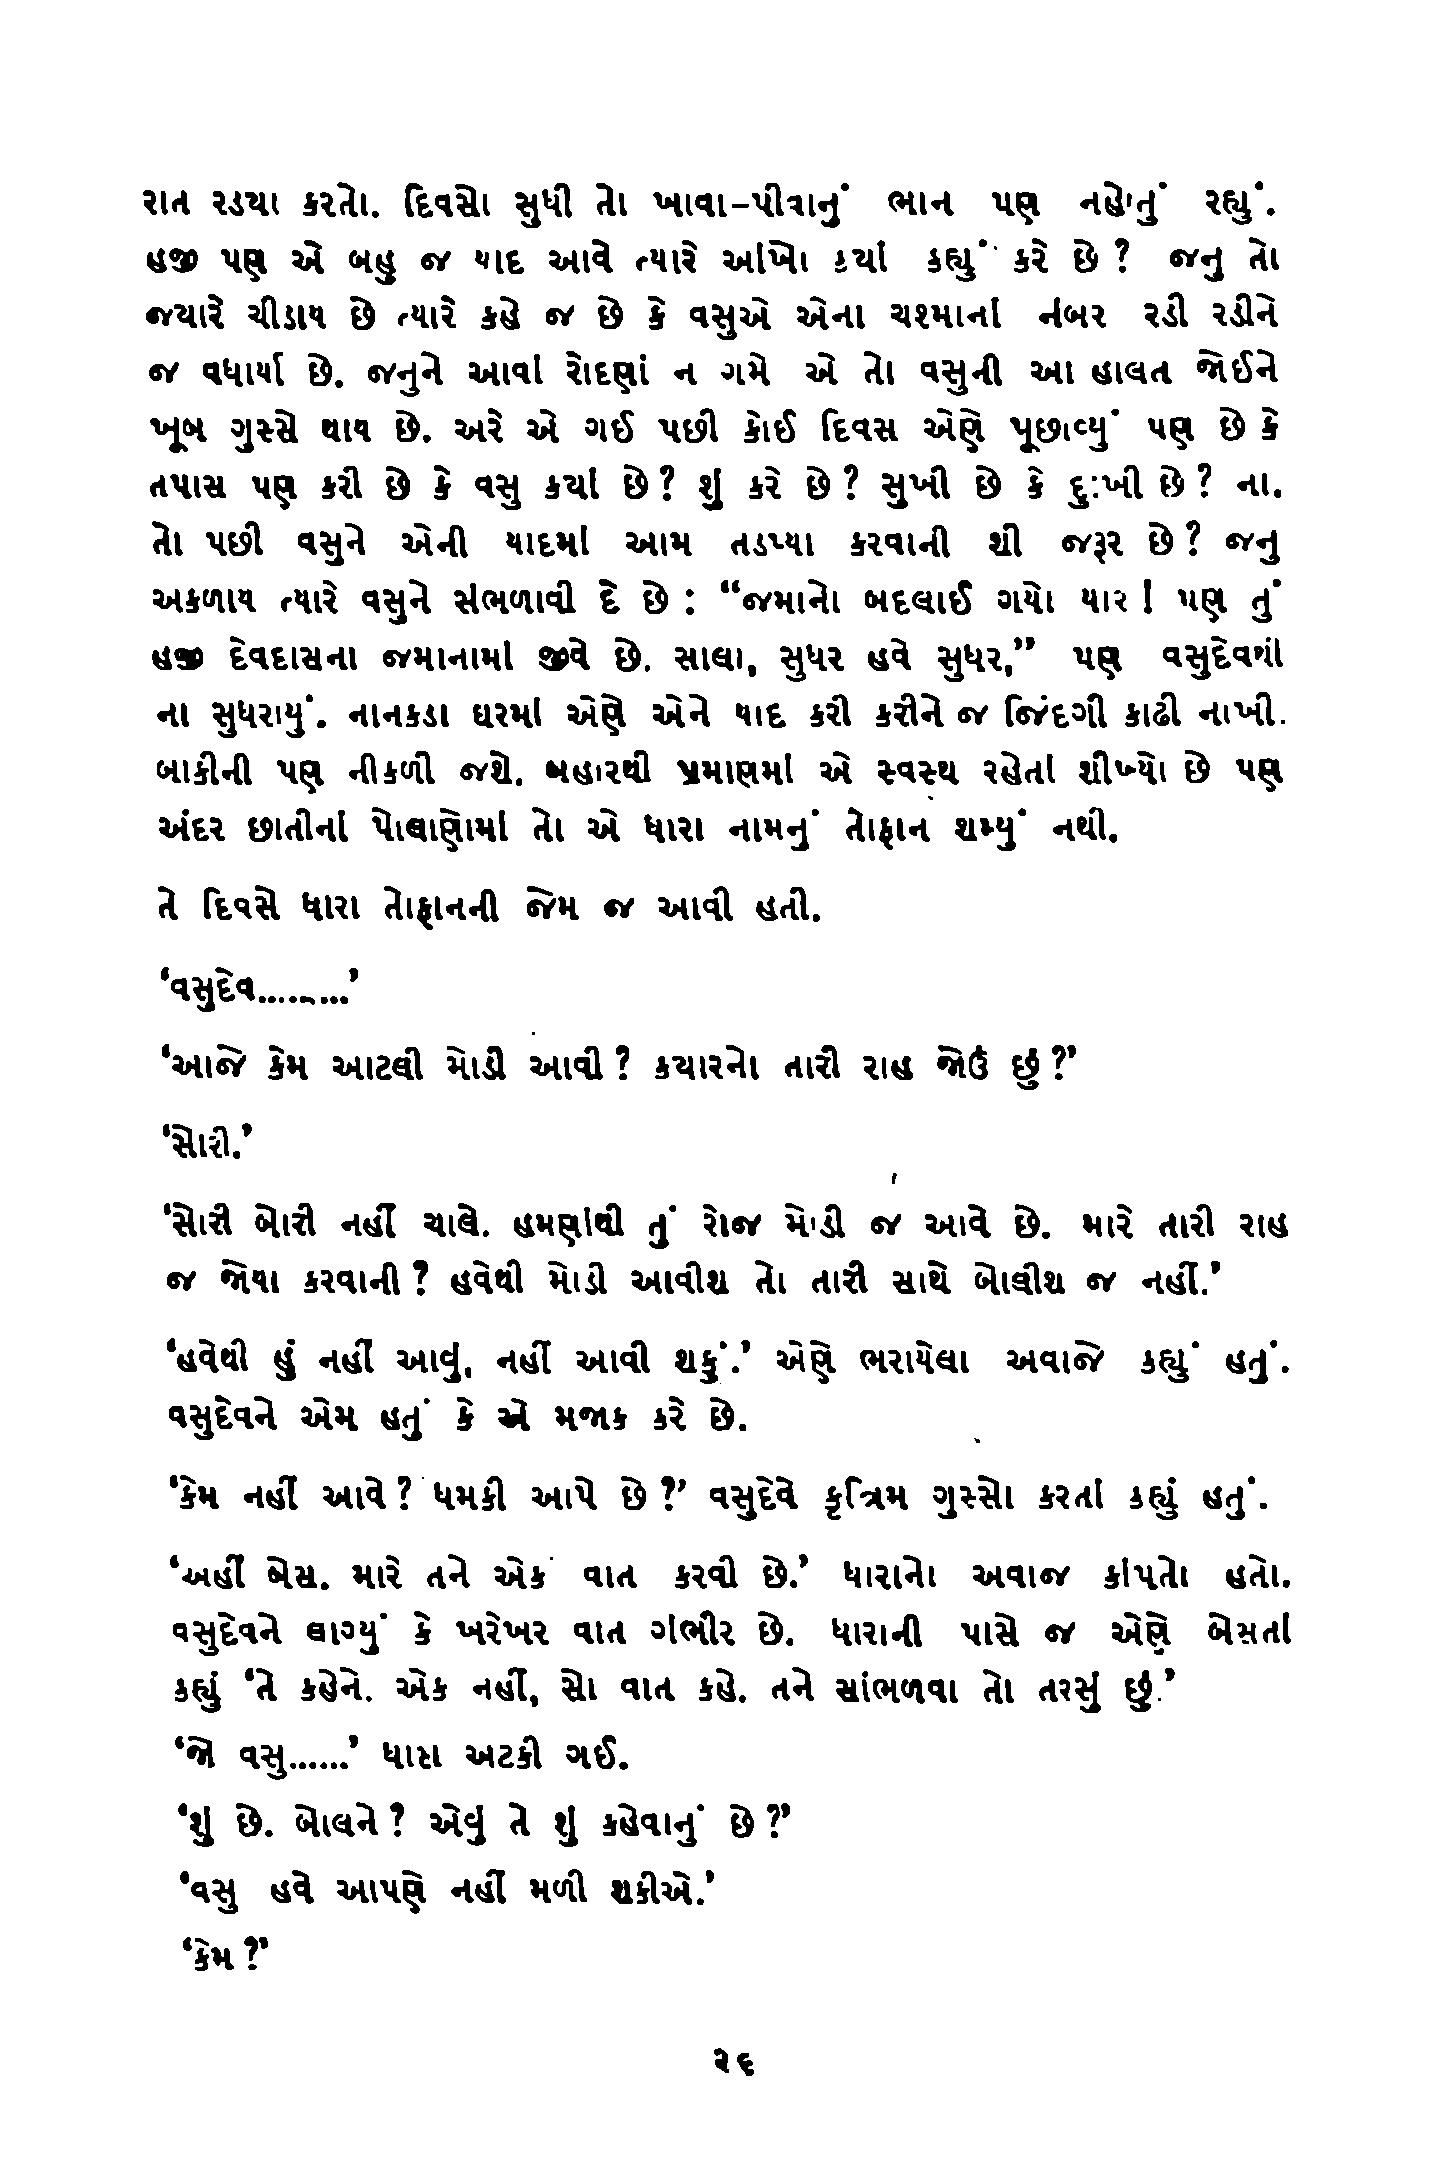 રાત રડયા કરતો. દિવસો સુધી તો ખાવા-પીવાનું ભાન પણ નહોતું રહ્યું.
હજી પણ એ બહુ જ યાદ આવે ત્યારે આંખો કયાં કહ્યું કરે છે? જનુ તો
જયારે ચીડાય છે ત્યારે કહે જ છે કે વસુએ એના ચશ્માનાં નંબર રડી રડીને
જ વધાર્યા છે. જનુને આવાં રોદણાં ન ગમે એ તો વસુની આ હાલત જોઈને
ખૂબ ગુસ્સે થાય છે. અરે એ ગઈ પછી કોઈ દિવસ એણે પૂછાવ્યું પણ છે કે
તપાસ પણ કરી છે કે વસુ કયાં છે? શું કરે છે? સુખી છે કે દુ:ખી છે? ના.
તો પછી વસુને એની યાદમાં આમ તડપ્યા કરવાની શી જરૂર છે? જનુ
અકળાય ત્યારે વસુને સંભળાવી દે છે : “જમાનો બદલાઈ ગયો યાર! પણ તું
હજી દેવદાસના જમાનામાં જીવે છે. સાલા, સુધર હવે સુધર,” પણ વસુદેવથી
ના સુધરાયું. નાનકડા ઘરમાં એણે એને યાદ કરી કરીને જ જિંદગી કાઢી નાખી.
બાકીની પણ નીકળી જશે. બહારથી પ્રમાણમાં એ સ્વસ્થ રહેતાં શીખ્યો છે પણ
અંદર છાતીનાં પોલાણોમાં તો એ ધારા નામનું તોફાન શમ્યું નથી.
તે દિવસે ધારા તોફાનની જેમ જ આવી હતી.
‘વસુદેવ.........’
‘આજે કેમ આટલી મોડી આવી? કયારનો તારી રાહ જોઉં છું?’
‘સોરી.’
‘સોરી બોરી નહીં ચાલે. હમણાંથી તું રોજ મોડી જ આવે છે. મારે તારી રાહ
જ જોયા કરવાની? હવેથી મોડી આવીશ તો તારી સાથે બોલીશ જ નહીં.’
‘હવેથી હું નહીં આવું, નહીં આવી શકું.’ એણે ભરાયેલા અવાજે કહ્યું હતું.
વસુદેવને એમ હતું કે એ મજાક કરે છે.
‘કેમ નહીં આવે? ધમકી આપે છે?’ વસુદેવે કૃત્રિમ ગુસ્સો કરતાં કહ્યું હતું.
‘અહીં બેસ. મારે તને એક વાત કરવી છે.’ ધારાનો અવાજ કાંપતો હતો.
વસુદેવને લાગ્યું કે ખરેખર વાત ગંભીર છે. ધારાની પાસે જ એણે બેસતાં
કહ્યું ‘તે કહેને. એક નહીં, સો વાત કહે. તને સાંભળવા તો તરસું છું.’
‘જો વસુ......’ ધારા અટકી ગઈ.
‘શું છે. બોલને? એવું તે શું કહેવાનું છે?’
‘વસુ હવે આપણે નહીં મળી શકીએ.’
‘કેમ?’
૨૬